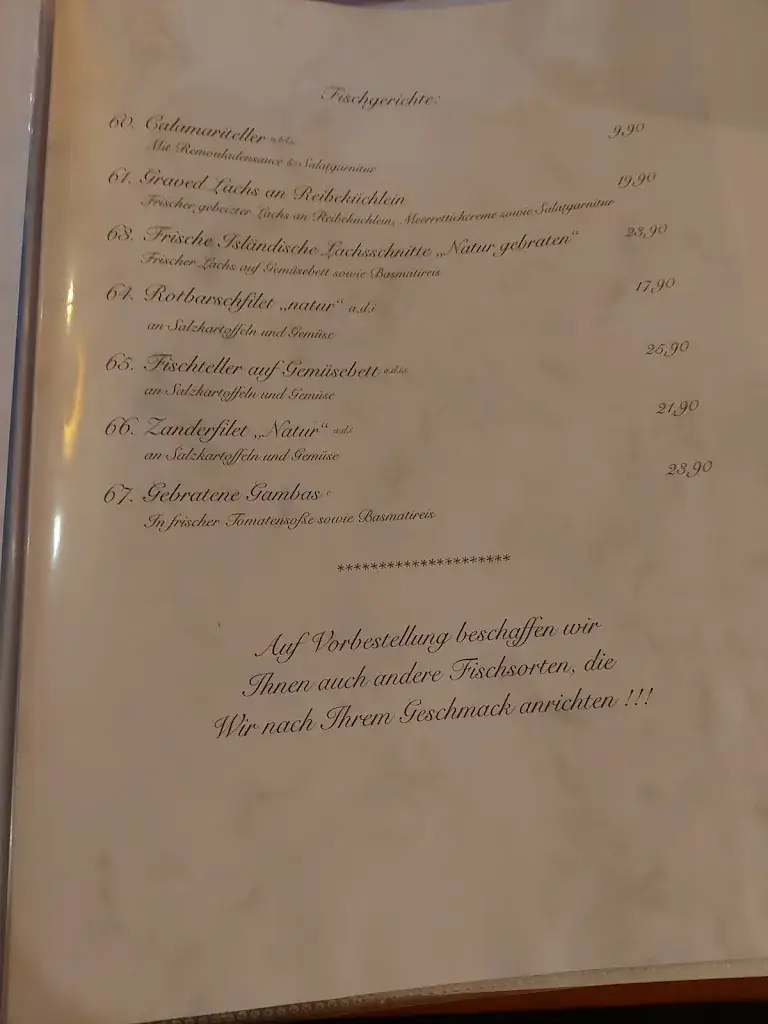 Fischgerichte:
60. Calamariteller 9,90
Mit Remouladensauce & Salatgarnitur
61. Graved Lachs an Reibeküchlein 19,90
Frischer gebeizter Lachs an Reibeküchlein, Meerrettichcreme sowie Salatgarnitur
63. Frische Isländische Lachsschnitte „Natur gebraten“ 23,90
Frischer Lachs auf Gemüsebett sowie Basmatireis
64. Rotbarschfilet „natur“ a.d.i 17,90
an Salzkartoffeln und Gemüse
65. Fischteller auf Gemüsebett 25,90
an Salzkartoffeln und Gemüse
66. Zanderfilet „Natur“ a.d.i 21,90
an Salzkartoffeln und Gemüse
67. Gebratene Gambas 23,90
In frischer Tomatensoße sowie Basmatireis
*********************
Auf Vorbestellung beschaffen wir
Ihnen auch andere Fischsorten, die
Wir nach Ihrem Geschmack anrichten !!!